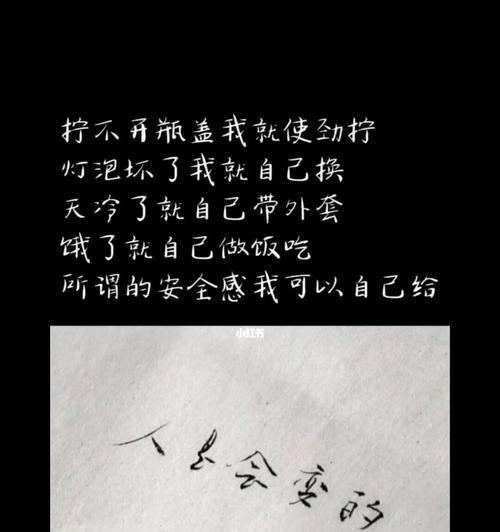 拧不开瓶盖我就使劲拧
灯泡坏了我就自己换
天冷了就自己带外套
饿了就自己做饭吃
所谓的安全感我可以自己给
小红书
人是会变的